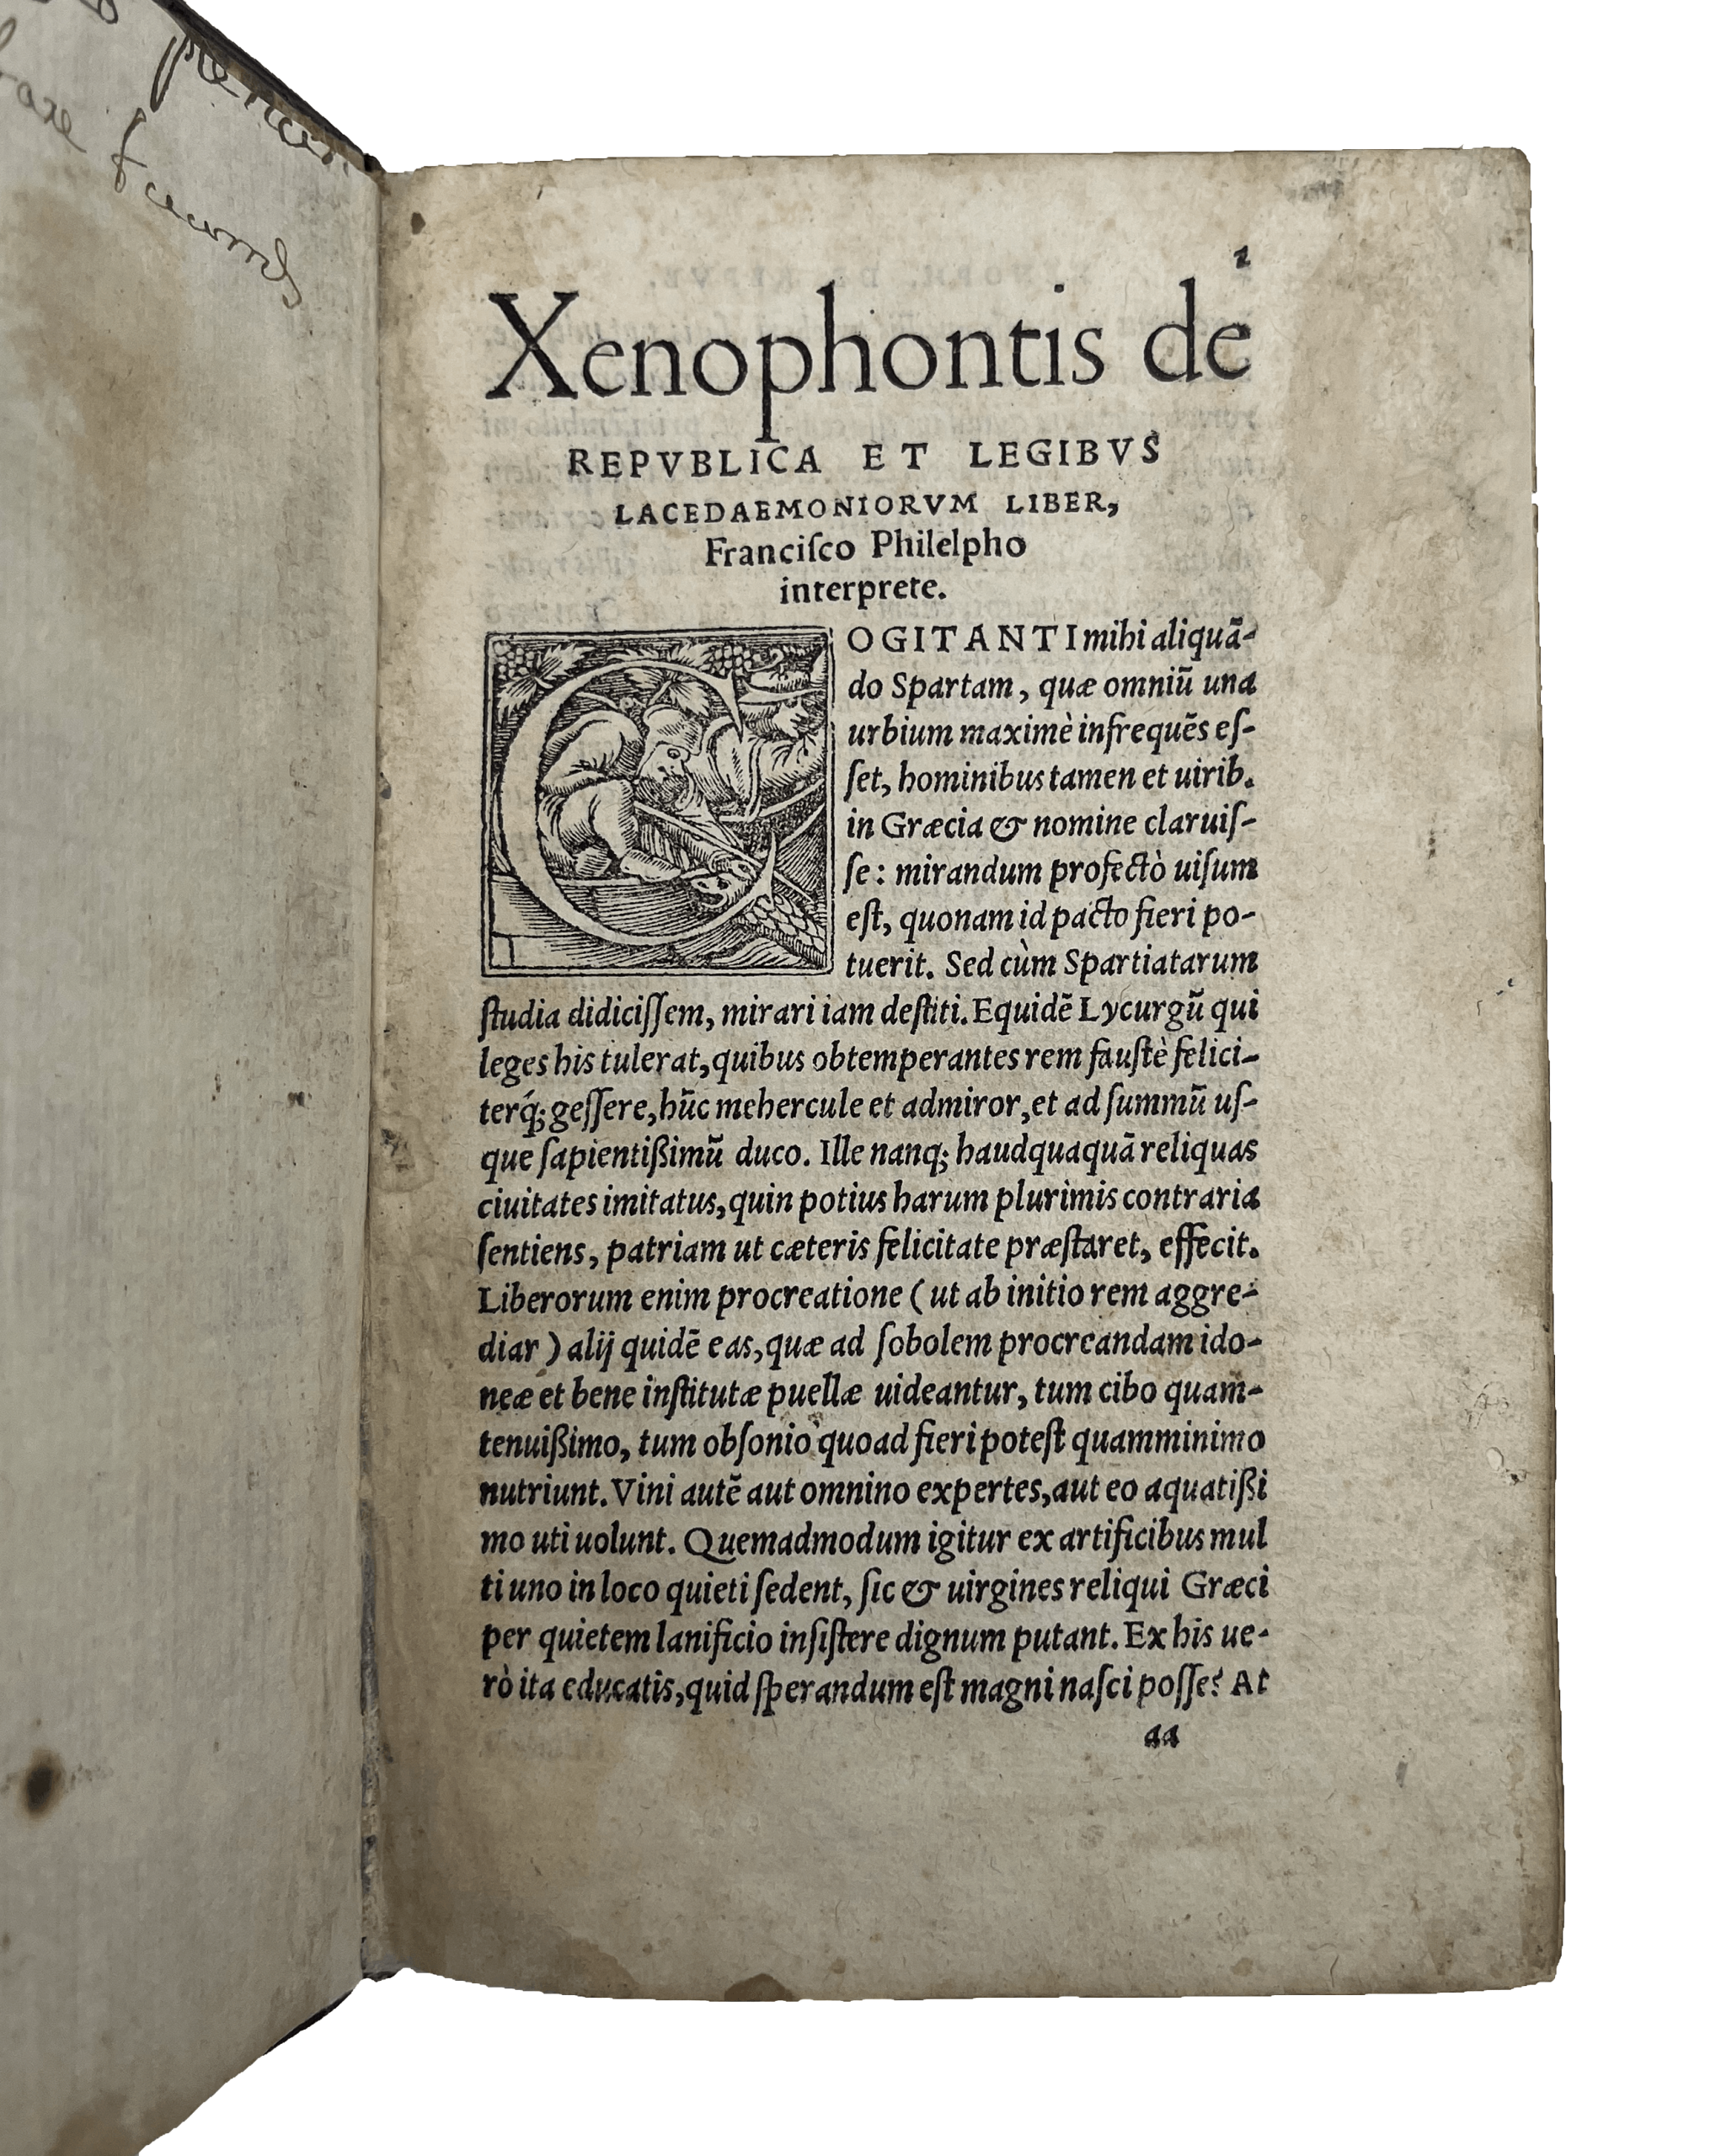 1
Xenophontis de
REPVBLICA ET LEGIBVS
LACEDAEMONIORVM LIBER,
Franciſco Philelpho
interprete.
COGITANTI mihi aliquā-
do Spartam, quæ omniū una
urbium maximè infrequēs eſ-
ſet, hominibus tamen et uirib.
in Græcia & nomine claruiſ-
ſe: mirandum profectò uiſum
eſt, quonam id pacto fieri po-
tuerit. Sed cùm Spartiatarum
ſtudia didiciſſem, mirari iam deſtiti. Equidē Lycurgū qui
leges his tulerat, quibus obtemperantes rem fauſtè felici-
terq́; geſſere, hūc mehercule et admiror, et ad ſummū uſ-
que ſapientißimū duco. Ille nanq; haudquaquā reliquas
ciuitates imitatus, quin potius harum plurimis contraria
ſentiens, patriam ut cæteris felicitate præſtaret, effecit.
Liberorum enim procreatione ( ut ab initio rem aggre-
diar ) alij quidē eas, quæ ad ſobolem procreandam ido-
neæ et bene inſtitutæ puellæ uideantur, tum cibo quam-
tenuißimo, tum obſonio quoad fieri poteſt quamminimo
nutriunt. Vini autē aut omnino expertes, aut eo aquatißi
mo uti uolunt. Quemadmodum igitur ex artificibus mul
ti uno in loco quieti ſedent, ſic & uirgines reliqui Græci
per quietem lanificio inſiſtere dignum putant. Ex his ue-
rò ita educatis, quid ſperandum eſt magni naſci poſſe? At
aa